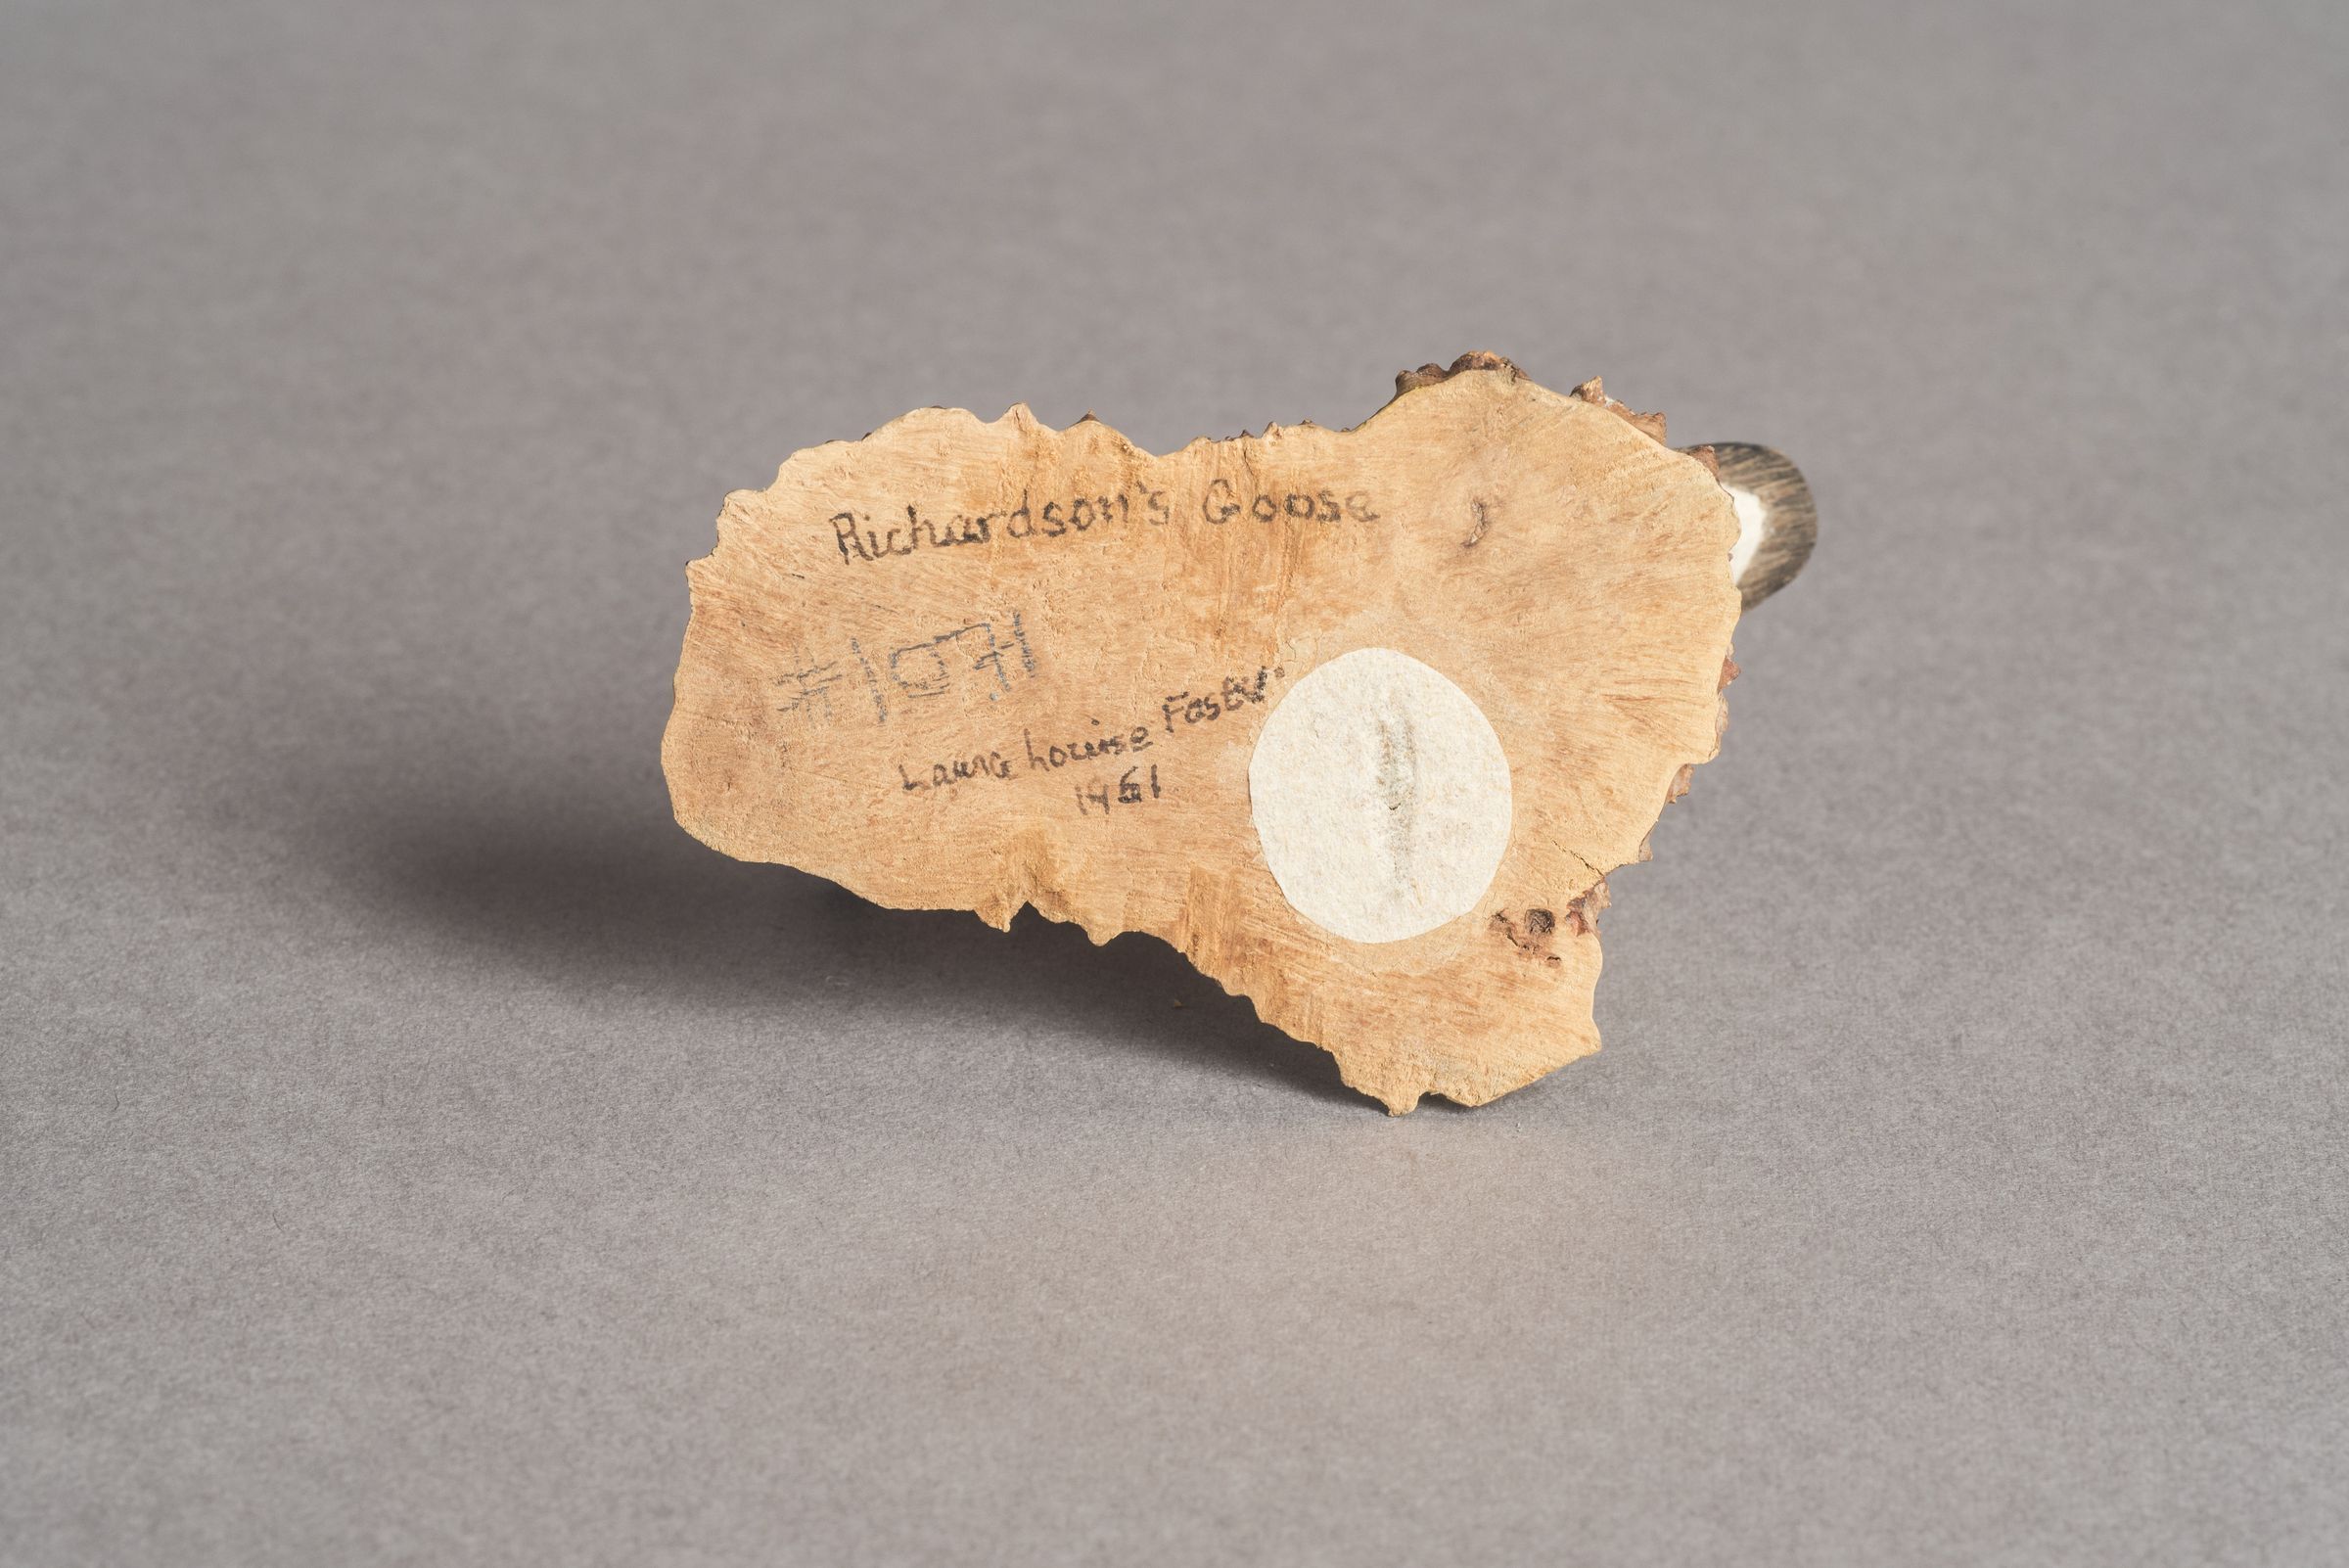 Richardson's Goose
Laura Louise Foster